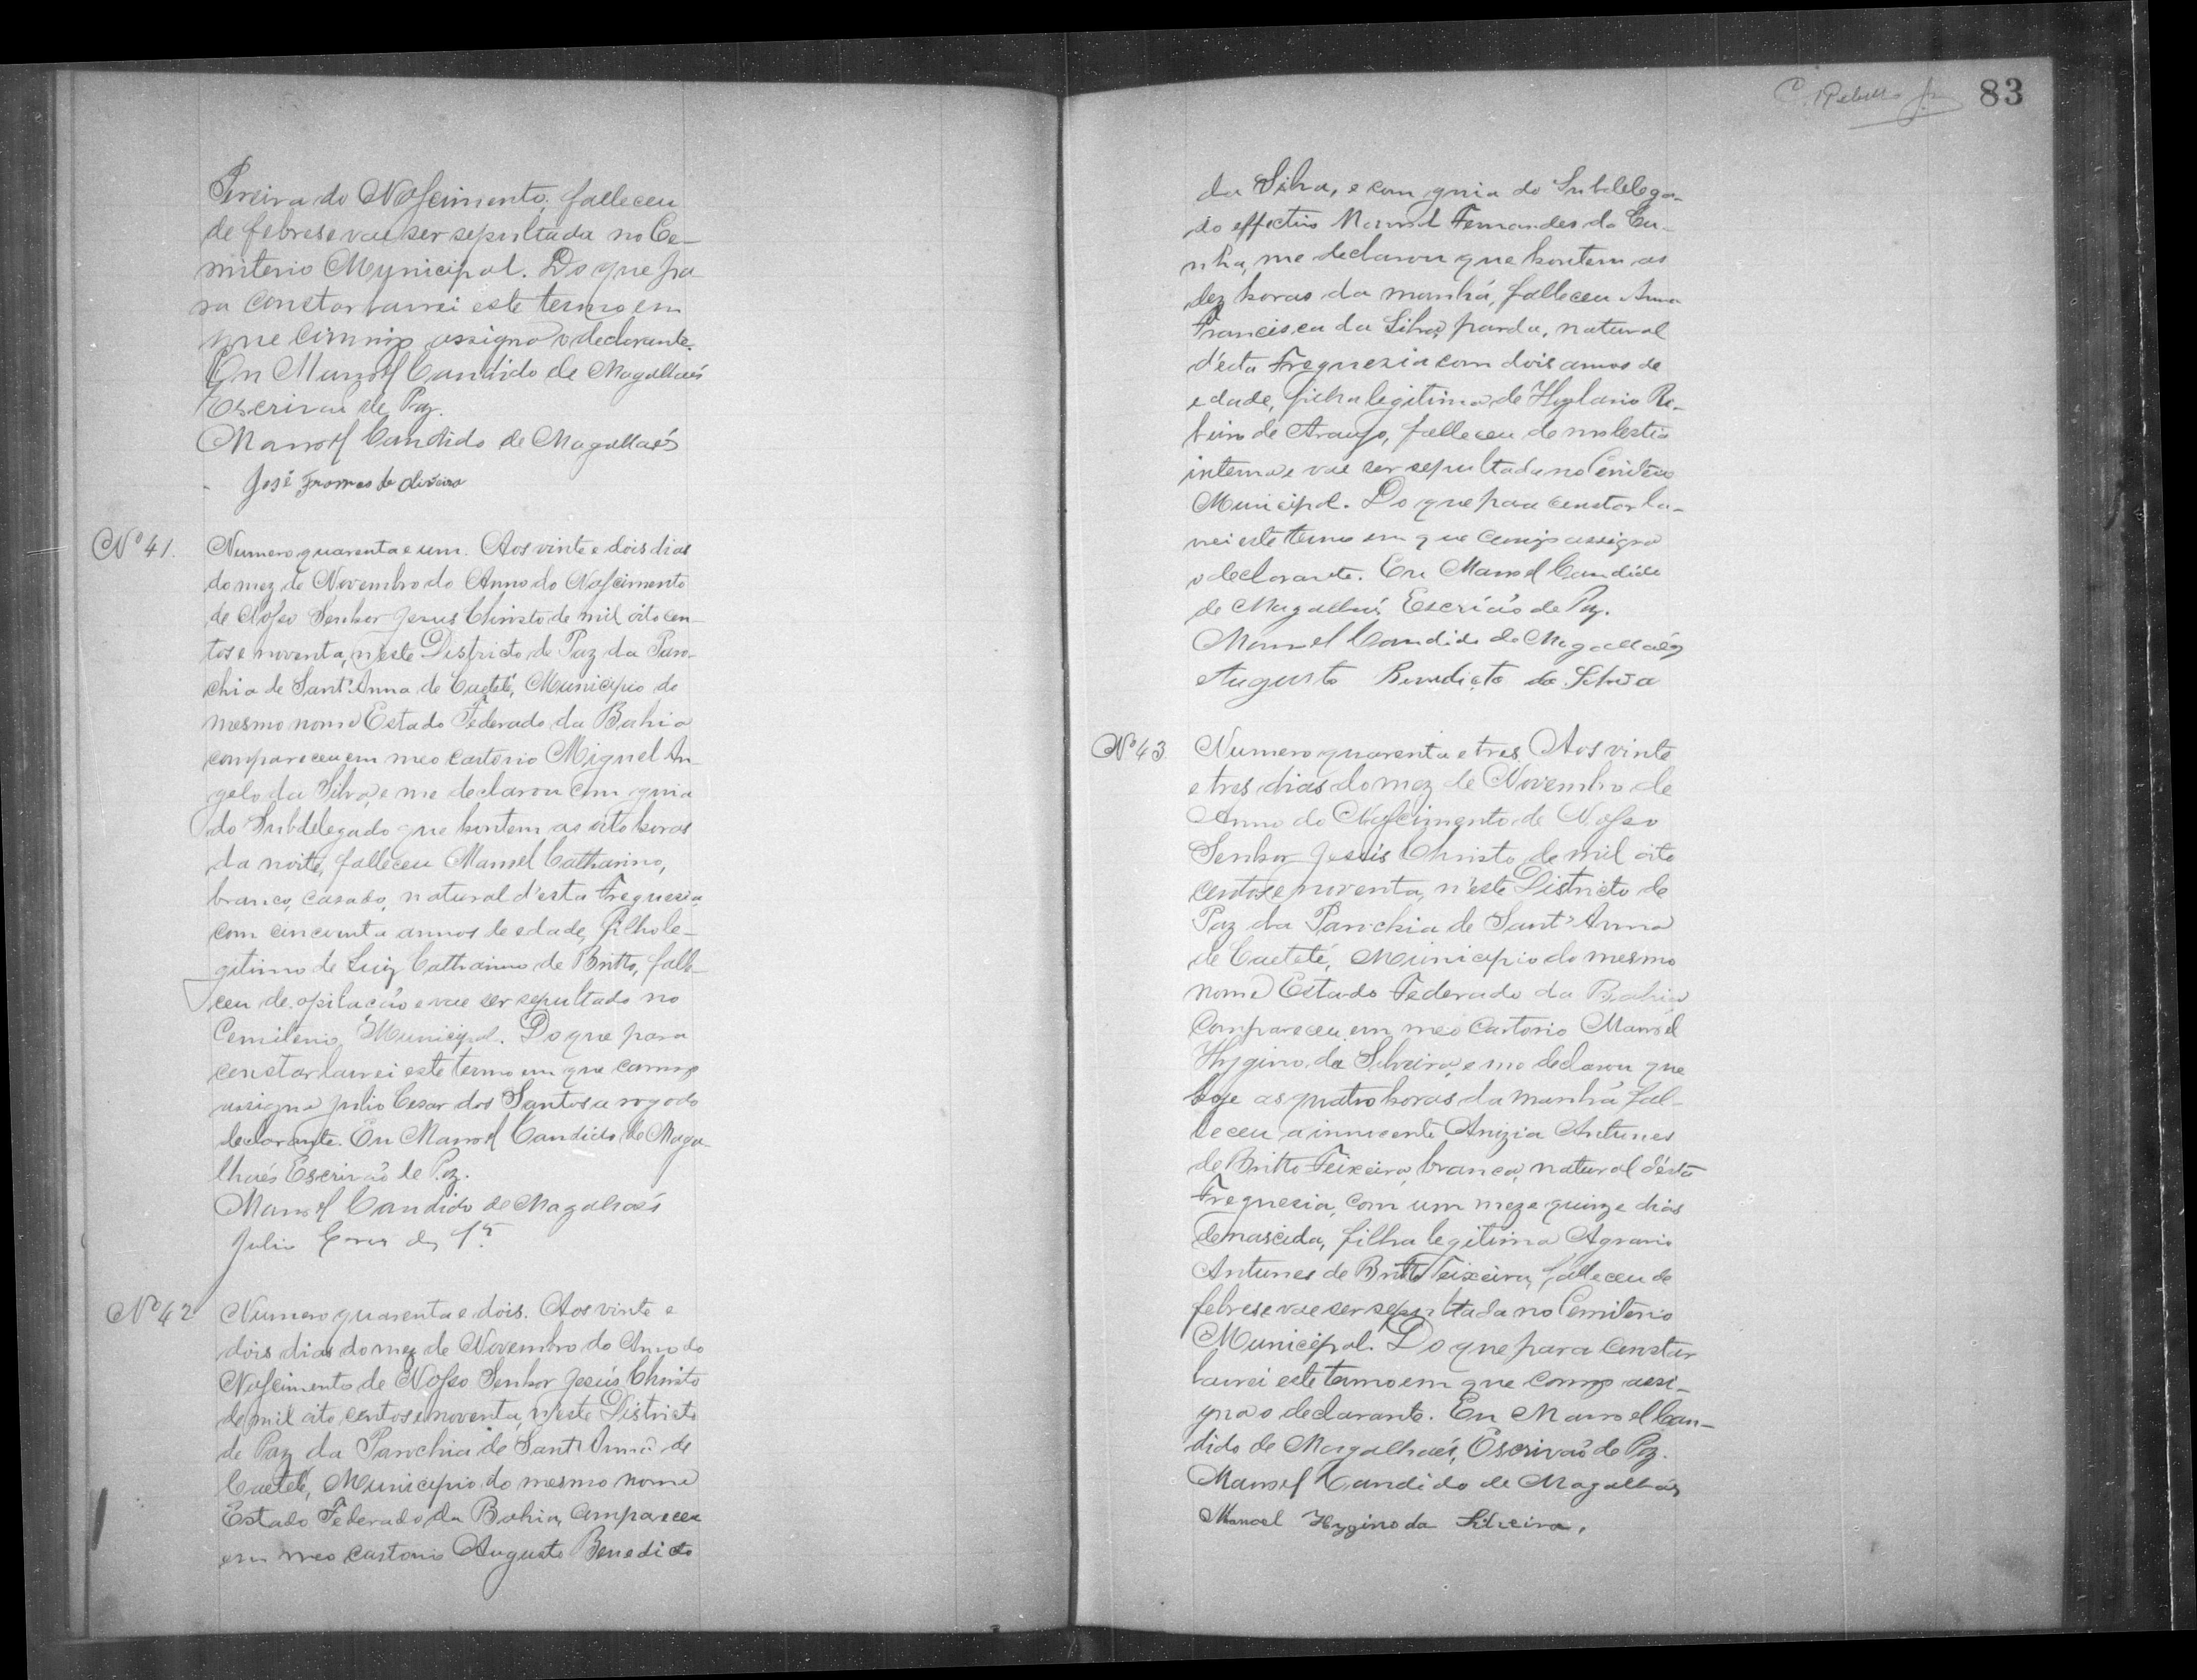 Pereira do Nascimento, falleceu
de febres e vae ser sepultada no Ce-
miterio Municipal. Do que pa
ra constar lavrei este termo em
que comigo assigna o declarante.
Eu Manoel Candido de Magalhaés
Escrivaõ de Paz.
Manoel Candido de Magalhaés
José de Oliveira
Nº 41.
Numero quarenta e um. Aos vinte e dois dias
do mez de Novembro do Anno do Nascimento
de Nosso Senhor Jesus Christo de mil oito cen-
tos e noventa, n'este Districto de Paz da Paro-
chia de Sant'Anna de Caeteté, Municipio do
mesmo nome Estado Federado da Bahia
compareceu em meo cartorio Miguel An-
gelo da Silva, e me declarou com guia
do Subdelegado que hontem as oito horas
da noite, falleceu Manoel Catharino,
branco, casado, natural d'esta Freguesia
com cincoenta annos de edade, filho le-
gitimo de Luiz Catharino de Britto, falle-
ceu de opilacão e vae ser sepultado no
Cemiterio Municipal. Do que para
constar lavrei este termo em que comigo
assigna Julio Cesar dos Santos a rogo do
declarante. Eu Manoel Candido de Maga
lhaés Escrivão de Paz.
Manoel Candido de Magalhaés
Julio Cesar dos Stos
Nº 42
Numero quarenta e dois. Aos vinte e
dois dias do mez de Novembro do Anno do
Nascimento de Nosso Senhor Jesús Christo
de mil oito centos e noventa, n'este Districto
de Paz da Parochia de Sant'Anna de
Caeteté, Municipio do mesmo nome
Estado Federado da Bahia, compareceu
em meo cartorio Augusto Benedicto
83
da Silva, e com guia do Subdelega-
do effectivo Manoel Fernandes da Cu-
nha, me declarou que hontem as
dez horas da manhã, falleceu Anna
Francisca da Silva, parda, natural
d'esta Freguezia com dois annos de
edade, filha legitima de Ri-
beiro de Araujo, falleceu de molestia
interna e vae ser sepultada no Cemiterio
Municipal. Do que para constar la-
vrei este termo em que comigo assigna
o declarante. Eu Manoel Candido
de Magalhaés, Escrivão de Paz.
Manoel Candido de Magalhaés
Augusto Benedicto da Silva
Nº 43
Numero quarenta e tres. Aos vinte
e tres dias do mez de Novembro de
Anno do Nascimento de Nosso
Senhor Jesús Christo de mil oito
centos e noventa, n'este Districto de
Paz da Parochia de Sant'Anna
de Caeteté, Municipio do mesmo
nome Estado Federado da Bahia
compareceu em meo cartorio Manoel
Hygino da Silveira, e me declarou que
hoje as quatro horas da manhã fal-
leceu a innocente Anizia Antunes
de Britto Teixeira, branca, natural d'ésta
Freguesia, com um mez e quinze dias
de nascida, filha legitima Agrario
Antunes de Britto Teixeira, falleceu de
febres e vae ser sepultada no Cemiterio
Municipal. Do que para constar
lavrei este termo em que comigo assi-
gna o declarante. Eu Manoel Can-
dido de Magalhaés, Escrivaõ de Paz.
Manoel Candido de Magalhaés
Manoel Hygino da Silveira.